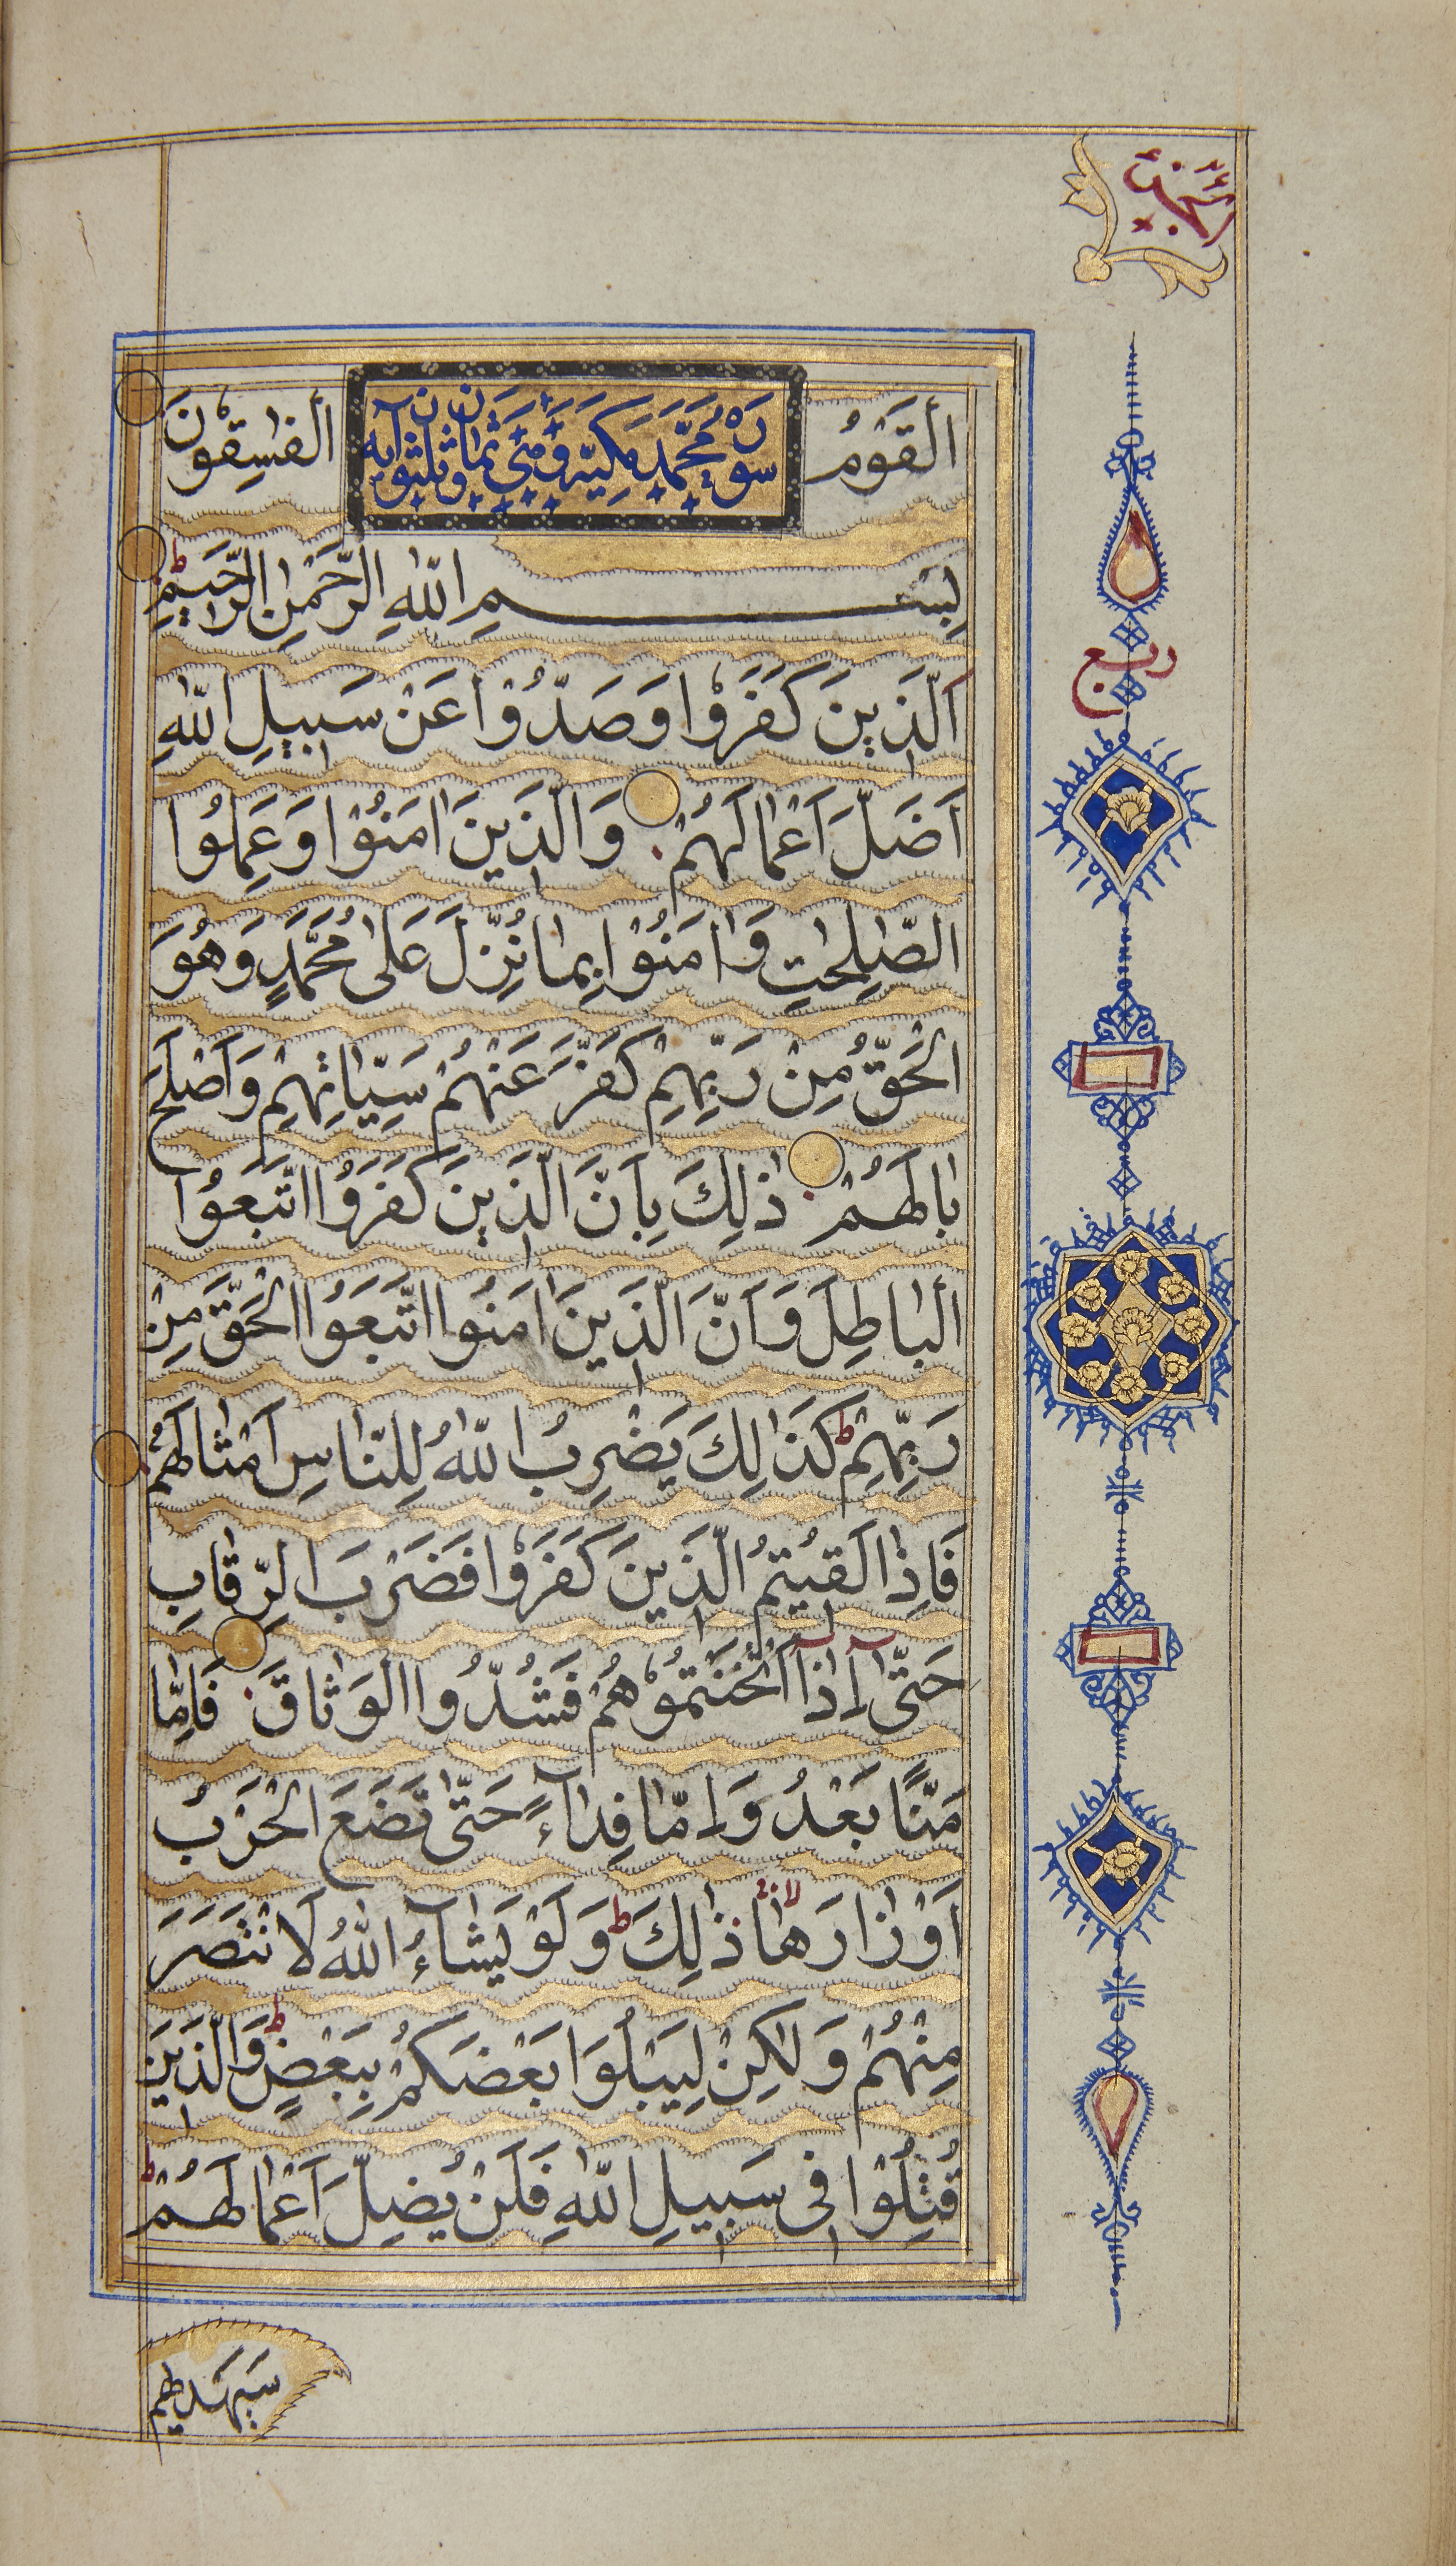 اَلْقَوْمُ الْفٰسِقُوْنَ
سورة محمّد مكيّه وهى ثمان وثلثون آيه
بِسْمِ اللّٰهِ الرَّحْمٰنِ الرَّحِيْمِ
اَلَّذِيْنَ كَفَرُوْا وَصَدُّوْا عَنْ سَبِيْلِ اللّٰهِ
اَضَلَّ اَعْمَالَهُمْ وَالَّذِيْنَ اٰمَنُوْا وَعَمِلُوا
الصّٰلِحٰتِ وَاٰمَنُوْا بِمَا نُزِّلَ عَلٰى مُحَمَّدٍ وَهُوَ
الْحَقُّ مِنْ رَبِّهِمْ كَفَّرَ عَنْهُمْ سَيِّاٰتِهِمْ وَاَصْلَحَ
بَالَهُمْ ذٰلِكَ بِاَنَّ الَّذِيْنَ كَفَرُوا اتَّبَعُوا
الْبَاطِلَ وَاَنَّ الَّذِيْنَ اٰمَنُوا اتَّبَعُوا الْحَقَّ مِنْ
رَبِّهِمْ ط كَذَالِكَ يَضْرِبُ اللّٰهُ لِلنَّاسِ اَمْثَالَهُمْ
فَاِذَا لَقِيْتُمُ الَّذِيْنَ كَفَرُوْا فَضَرْبَ الرِّقَابِ
حَتّٰى اِذَا اَثْخَنْتُمُوْهُمْ فَشُدُّوا الْوَثَاقَ فَاِمَّا
مَنًّا بَعْدُ وَاِمَّا فِدَآءً حَتّٰى تَضَعَ الْحَرْبُ
اَوْزَارَهَا ذٰلِكَ ط وَلَوْ يَشَآءُ اللّٰهُ لَانْتَصَرَ
مِنْهُمْ وَلٰكِنْ لِيَبْلُوَا بَعْضَكُمْ بِبَعْضٍ ط وَالَّذِيْنَ
قُتِلُوْا فِى سَبِيْلِ اللّٰهِ فَلَنْ يُضِلَّ اَعْمَالَهُمْ ط
سَيَهْدِيْهِمْ
ربع